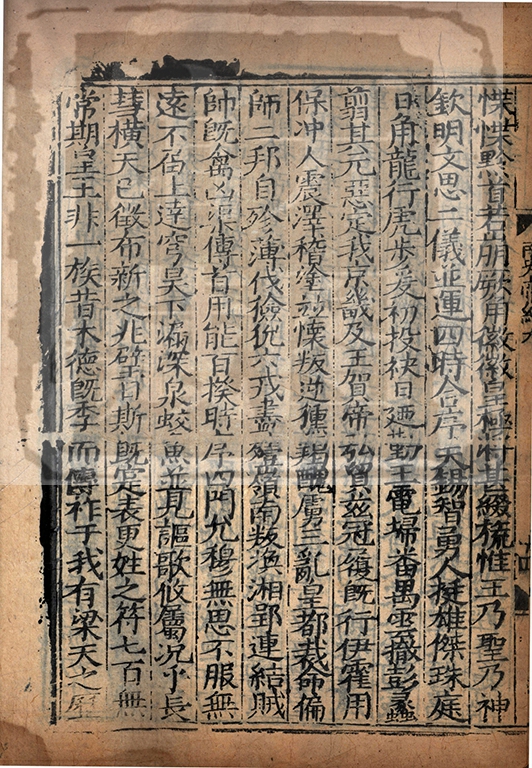 惵惵黔首若崩厥角微微皇極將甚綴旒惟王乃聖乃神
欽明文思二儀並運四時合序天錫智勇人挺雄傑珠庭
日角龍行虎步爰初投袂日廼勤王電埽番禺雲撤彭蠡
翦其元惡定我京畿及王賀帝弘貿兹冠履既行伊霍用
保冲人震澤稽塗並懷叛逆獯羯醜虜三亂皇都裁命偏
師二邦自殄薄伐獫狁六戎盡殪嶺南叛渙湘郢連結賊
帥既禽凶渠傳首用能百揆時序四門允穆無思不服無
遠不屆上達穹昊下漏深泉蛟魚並見謳歌攸屬況乎長
彗橫天已徵布新之兆璧日斯既寔表更姓之符七百無
常期皇王非一族昔木德既季而傳祚于我有梁天之歷